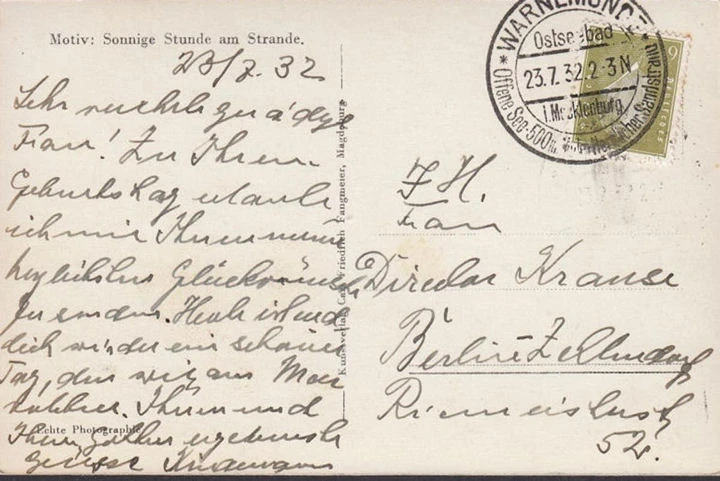 Motiv: Sonnige Stunde am Strande.
23/7. 32
Sehr verehrte gnädige
Frau! Zu Ihrem
Geburtstag erlaube
ich mir Ihnen meine
herzlichsten Glückwünsche
zu senden. Heute ist
doch wieder ein schöner
Tag, den wir am Meer
haben. Ihnen und
Ihrem Gatten ergebenste
Grüsse
Echte Photographie
Kunstverlag Carl Friedrich Fangmeier, Magdeburg
* WARNEMÜNDE *
Ostseebad
23.7.32.2-3N
i. Mecklenburg
Offene See-500m breiter Sandstrand
6
Frau
Director Krause
Berlin-Zehlendorf
Riemeisterstr
52.